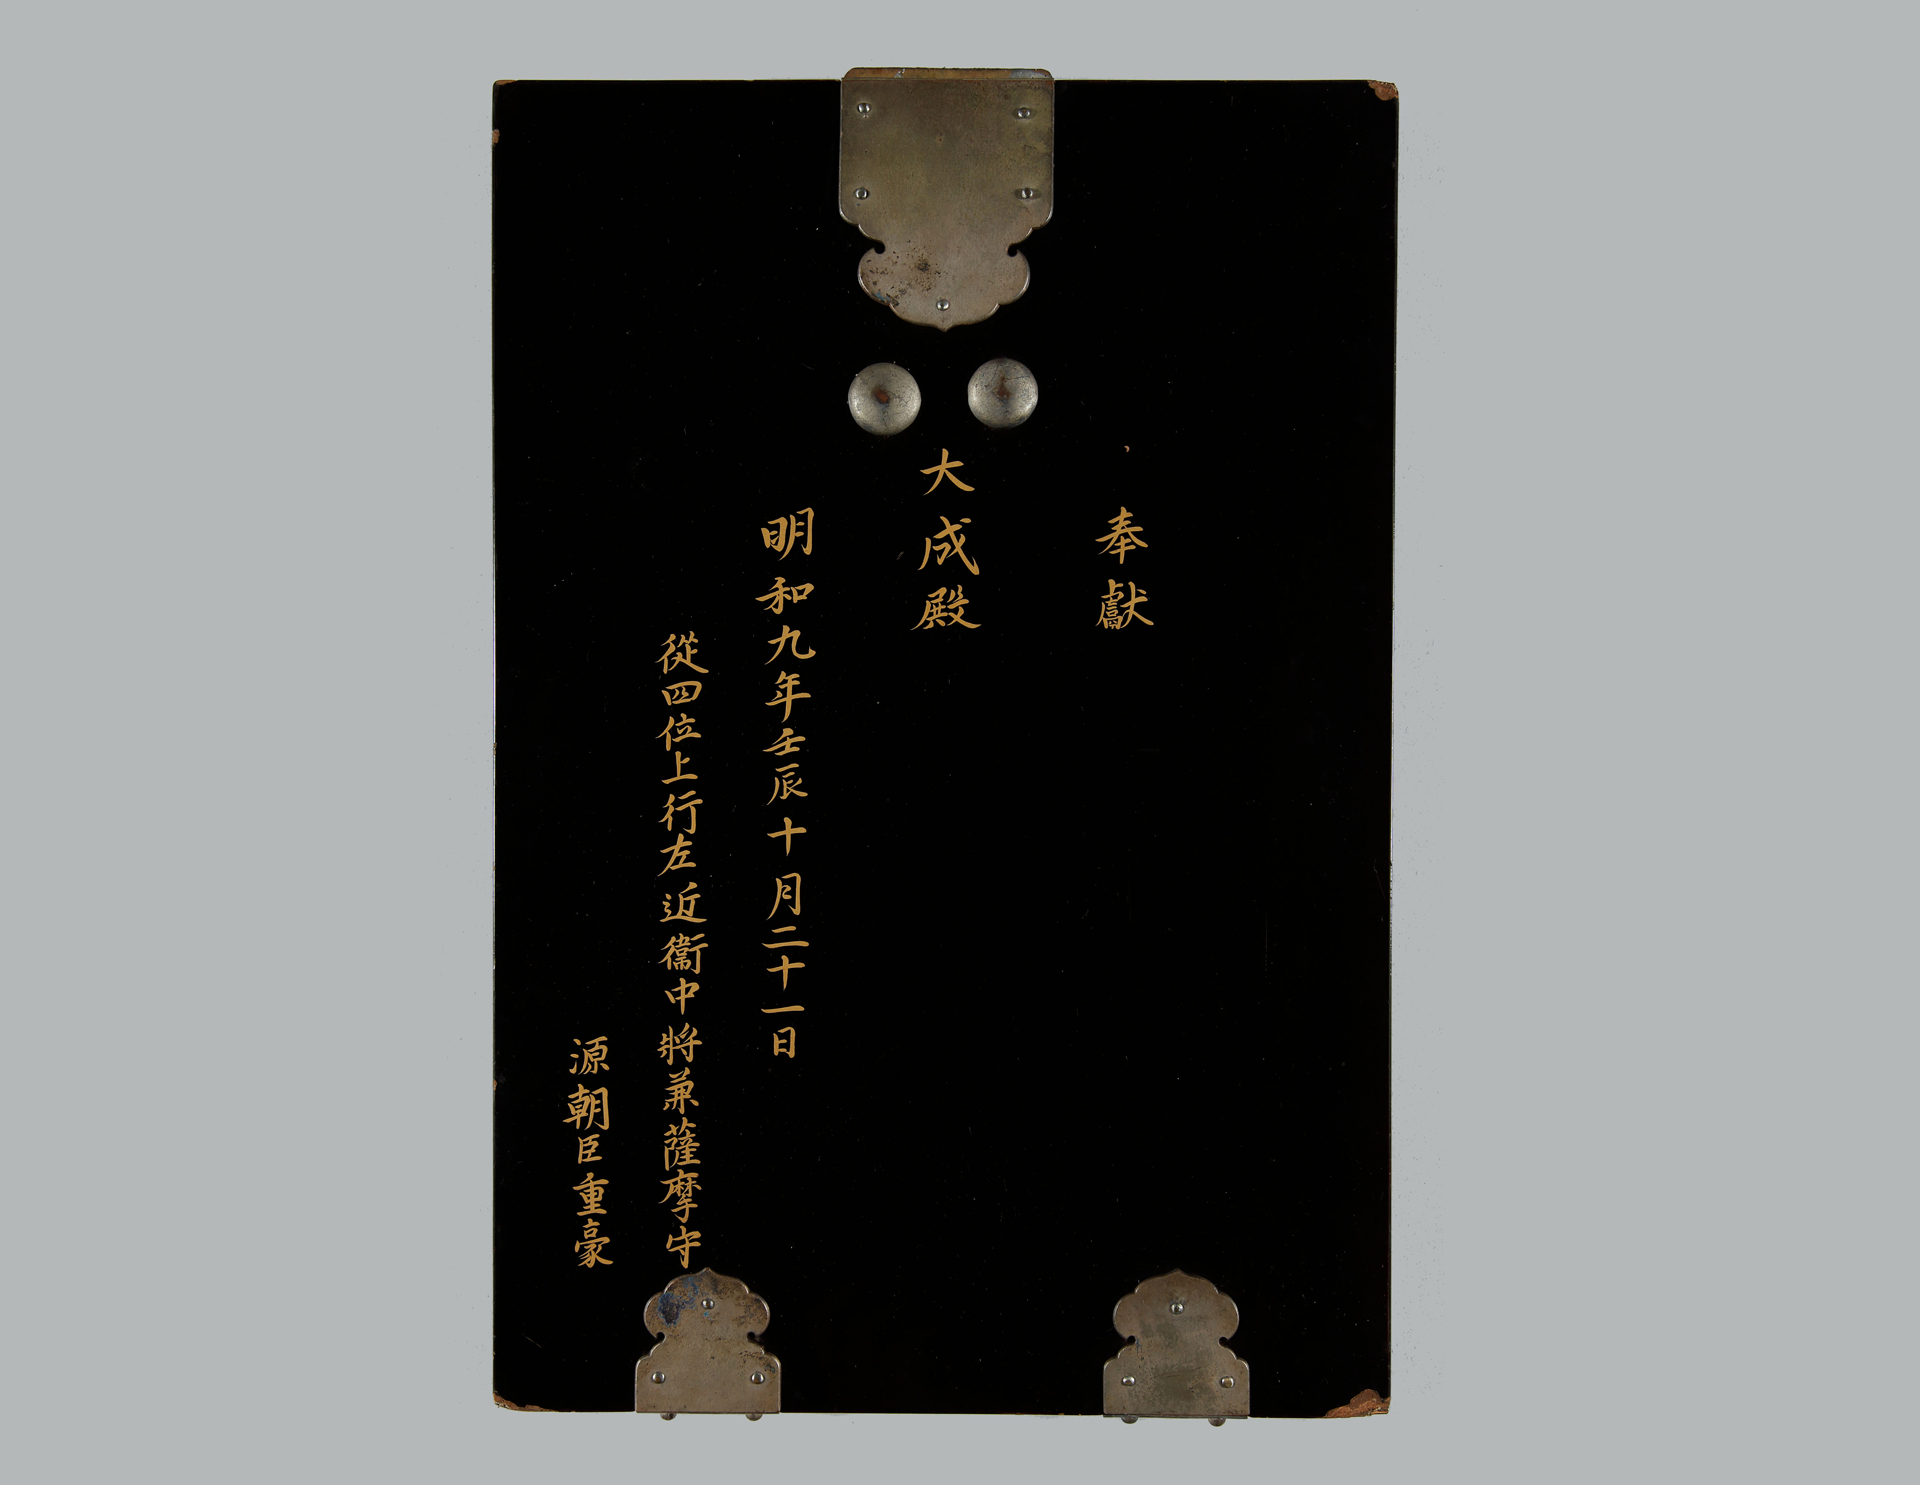 奉獻
大成殿
明和九年壬辰十月二十一日
從四位上行左近衞中將兼薩摩守
源朝臣重豪